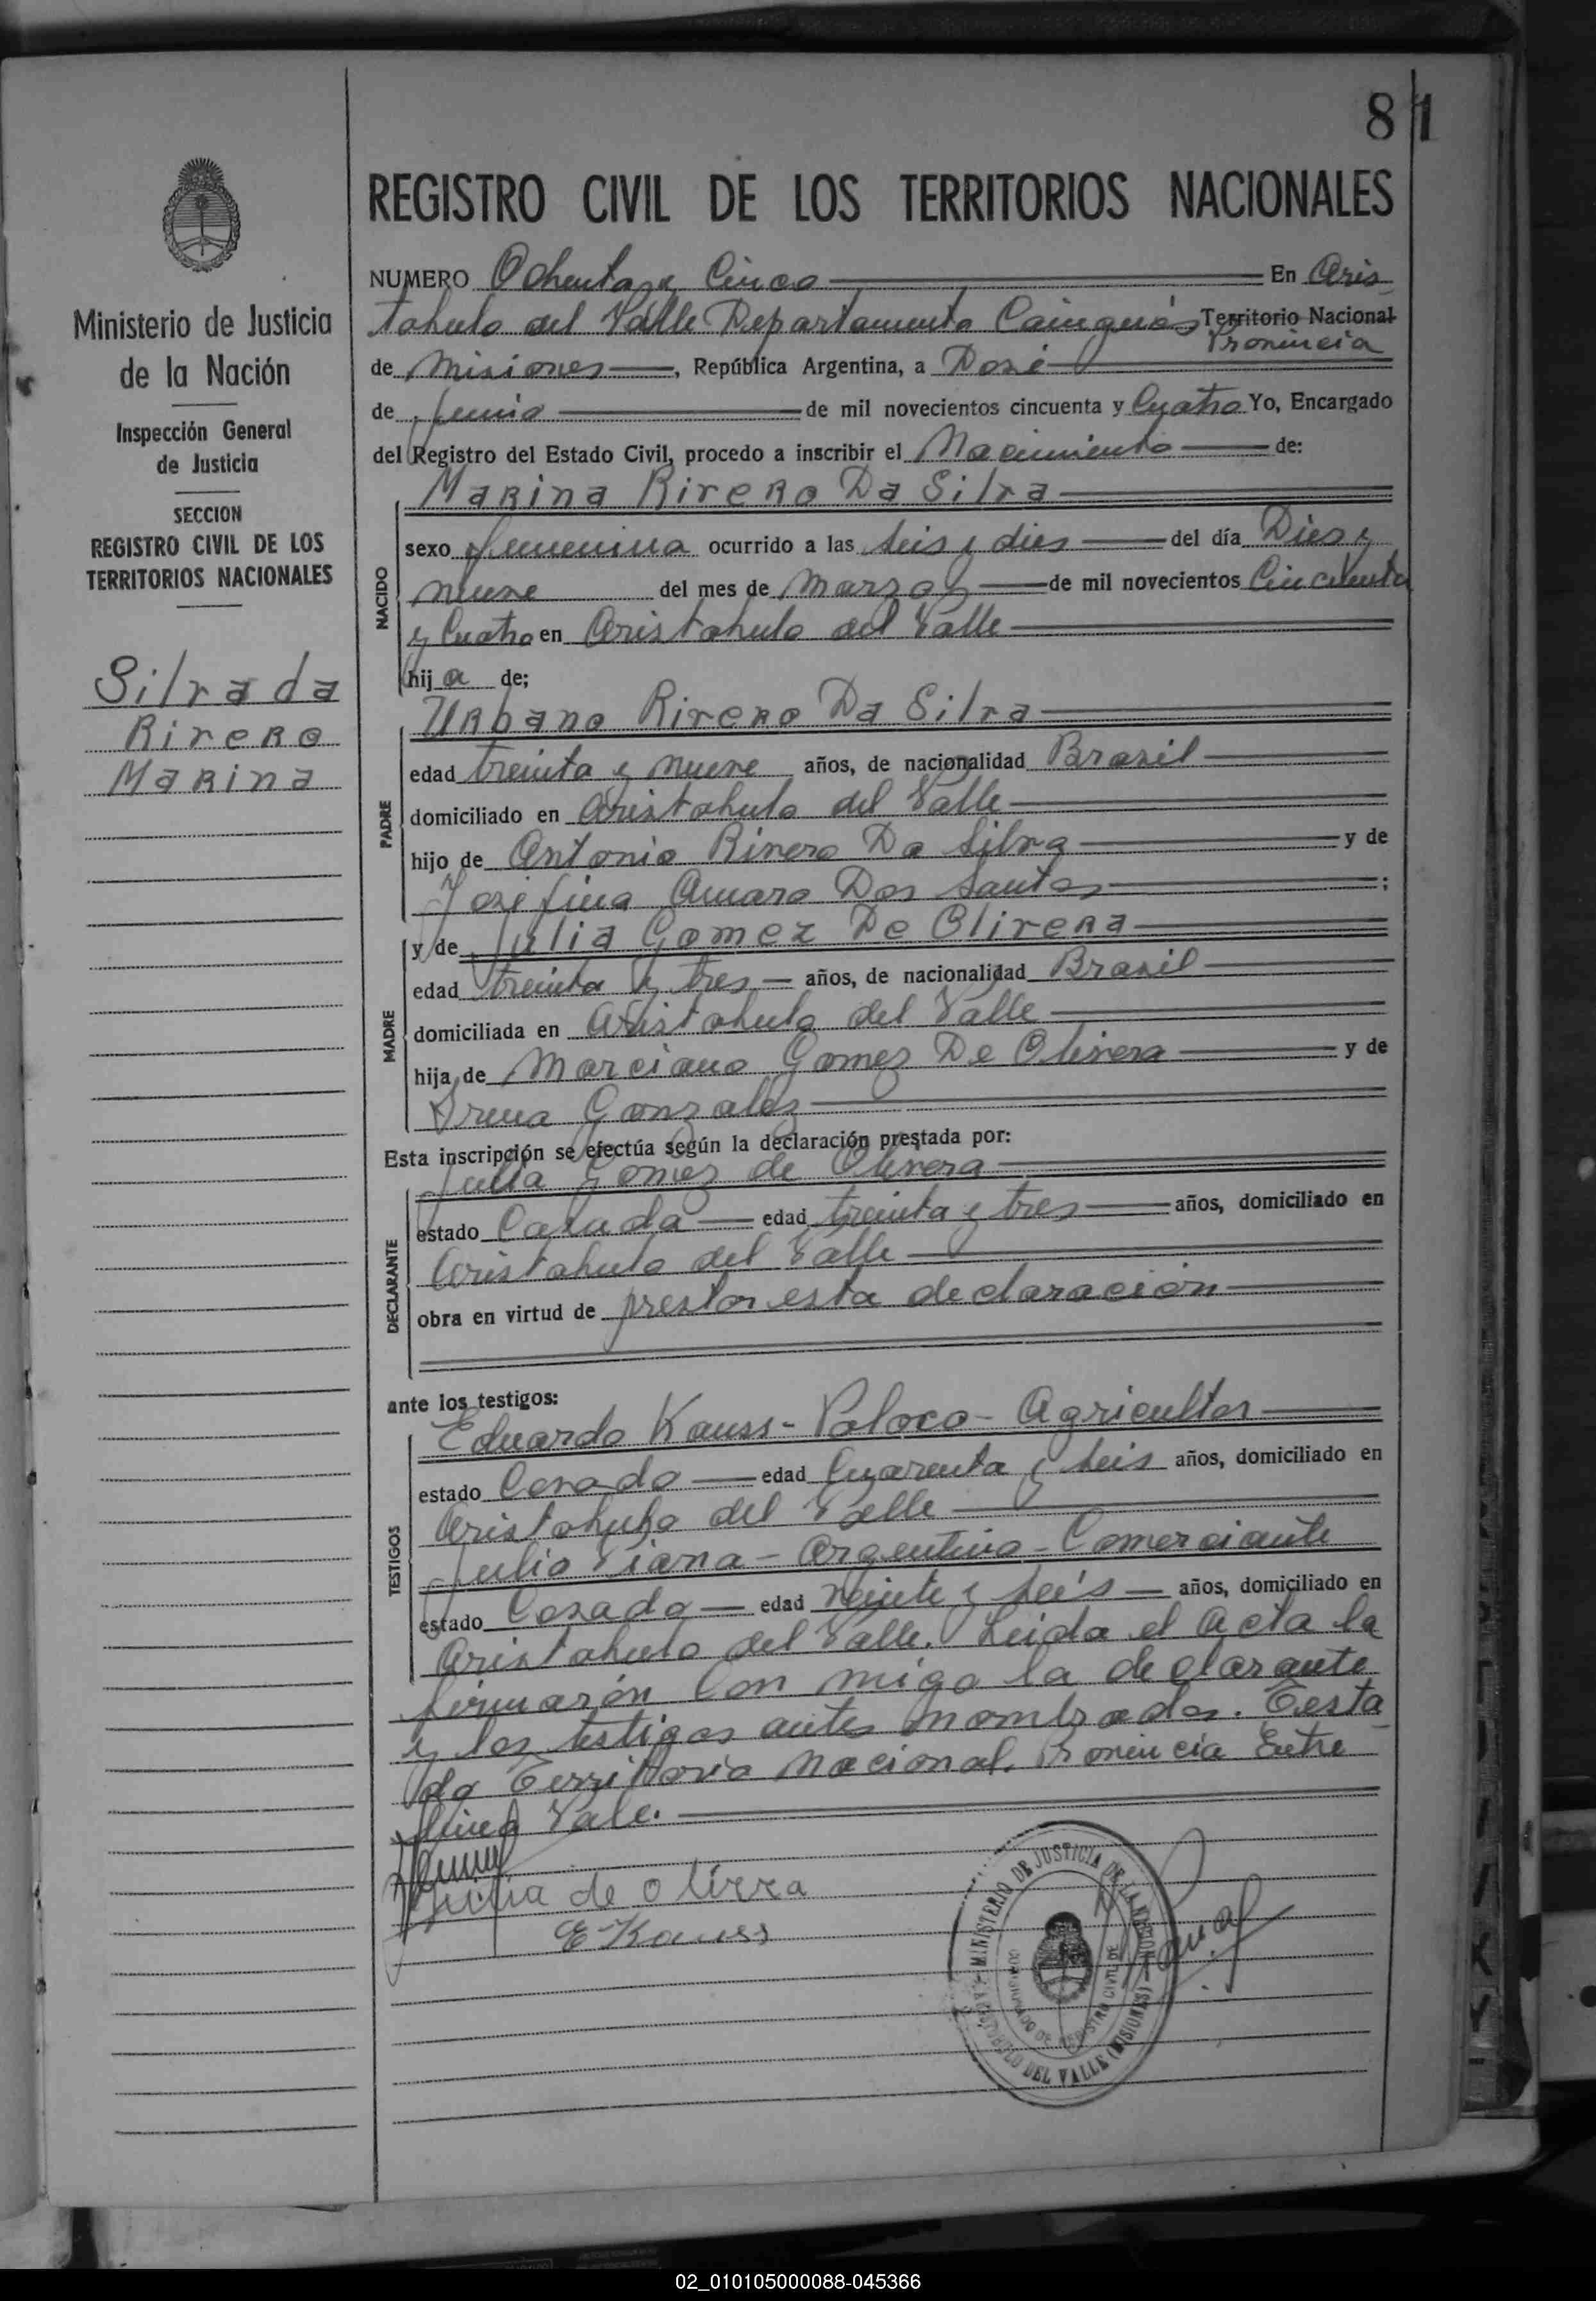 81
REGISTRO CIVIL DE LOS TERRITORIOS NACIONALES
Ministerio de Justicia
de la Nación
Inspección General
de Justicia
SECCION
REGISTRO CIVIL DE LOS
TERRITORIOS NACIONALES
Silva da
Rivero
Marina
NUMERO Ochenta y Cinco En Aris
tobulo del Valle Departamento Cainguás Territorio Nacional
Provincia
de Misiones, República Argentina, a Dose
de Junio de mil novecientos cincuenta y Cuatro Yo, Encargado
del Registro del Estado Civil, procedo a inscribir el Nacimiento de:
Marina Rivero Da Silva
NACIDO
sexo femenina ocurrido a las seis y dies del día Dies y
nueve del mes de Marzo de mil novecientos Cincuenta
y Cuatro en Aristobulo del Valle
hija de;
Urbano Rivero Da Silva
PADRE
edad treinta y nueve años, de nacionalidad Brasil
domiciliado en Aristobulo del Valle
hijo de Antonio Rivero Da Silva y de
Josefina Amaro Dos Santos;
MADRE
y de Julia Gomez De Olivera
edad treinta y tres años, de nacionalidad Brasil
domiciliada en Aristobulo del Valle
hija de Marciano Gomez De Olivera y de
Irena Gonzalez
Esta inscripción se efectúa según la declaración prestada por:
Julia Gomez de Olivera
DECLARANTE
estado Casada edad treinta y tres años, domiciliado en
Aristobulo del Valle
obra en virtud de prestar esta declaración
ante los testigos:
Eduardo Kauss - Polaco - Agricultor
TESTIGOS
estado Casado edad Cuarenta y seis años, domiciliado en
Aristobulo del Valle
Julio Viana - Argentino - Comerciante
estado Casado edad Veinte y seis años, domiciliado en
Aristobulo del Valle. Leida el Acta la
firmarón Con migo la declarante
y los testigos antes nombrados. Testa
do Territorio Nacional. Provincia Entre
linea Vale.
Julia de olivera
E Kauss
MINISTERIO DE JUSTICIA DE LA NACION
REGISTRO CIVIL DE
ARISTOBULO DEL VALLE (MISIONES)
02_010105000088-045366